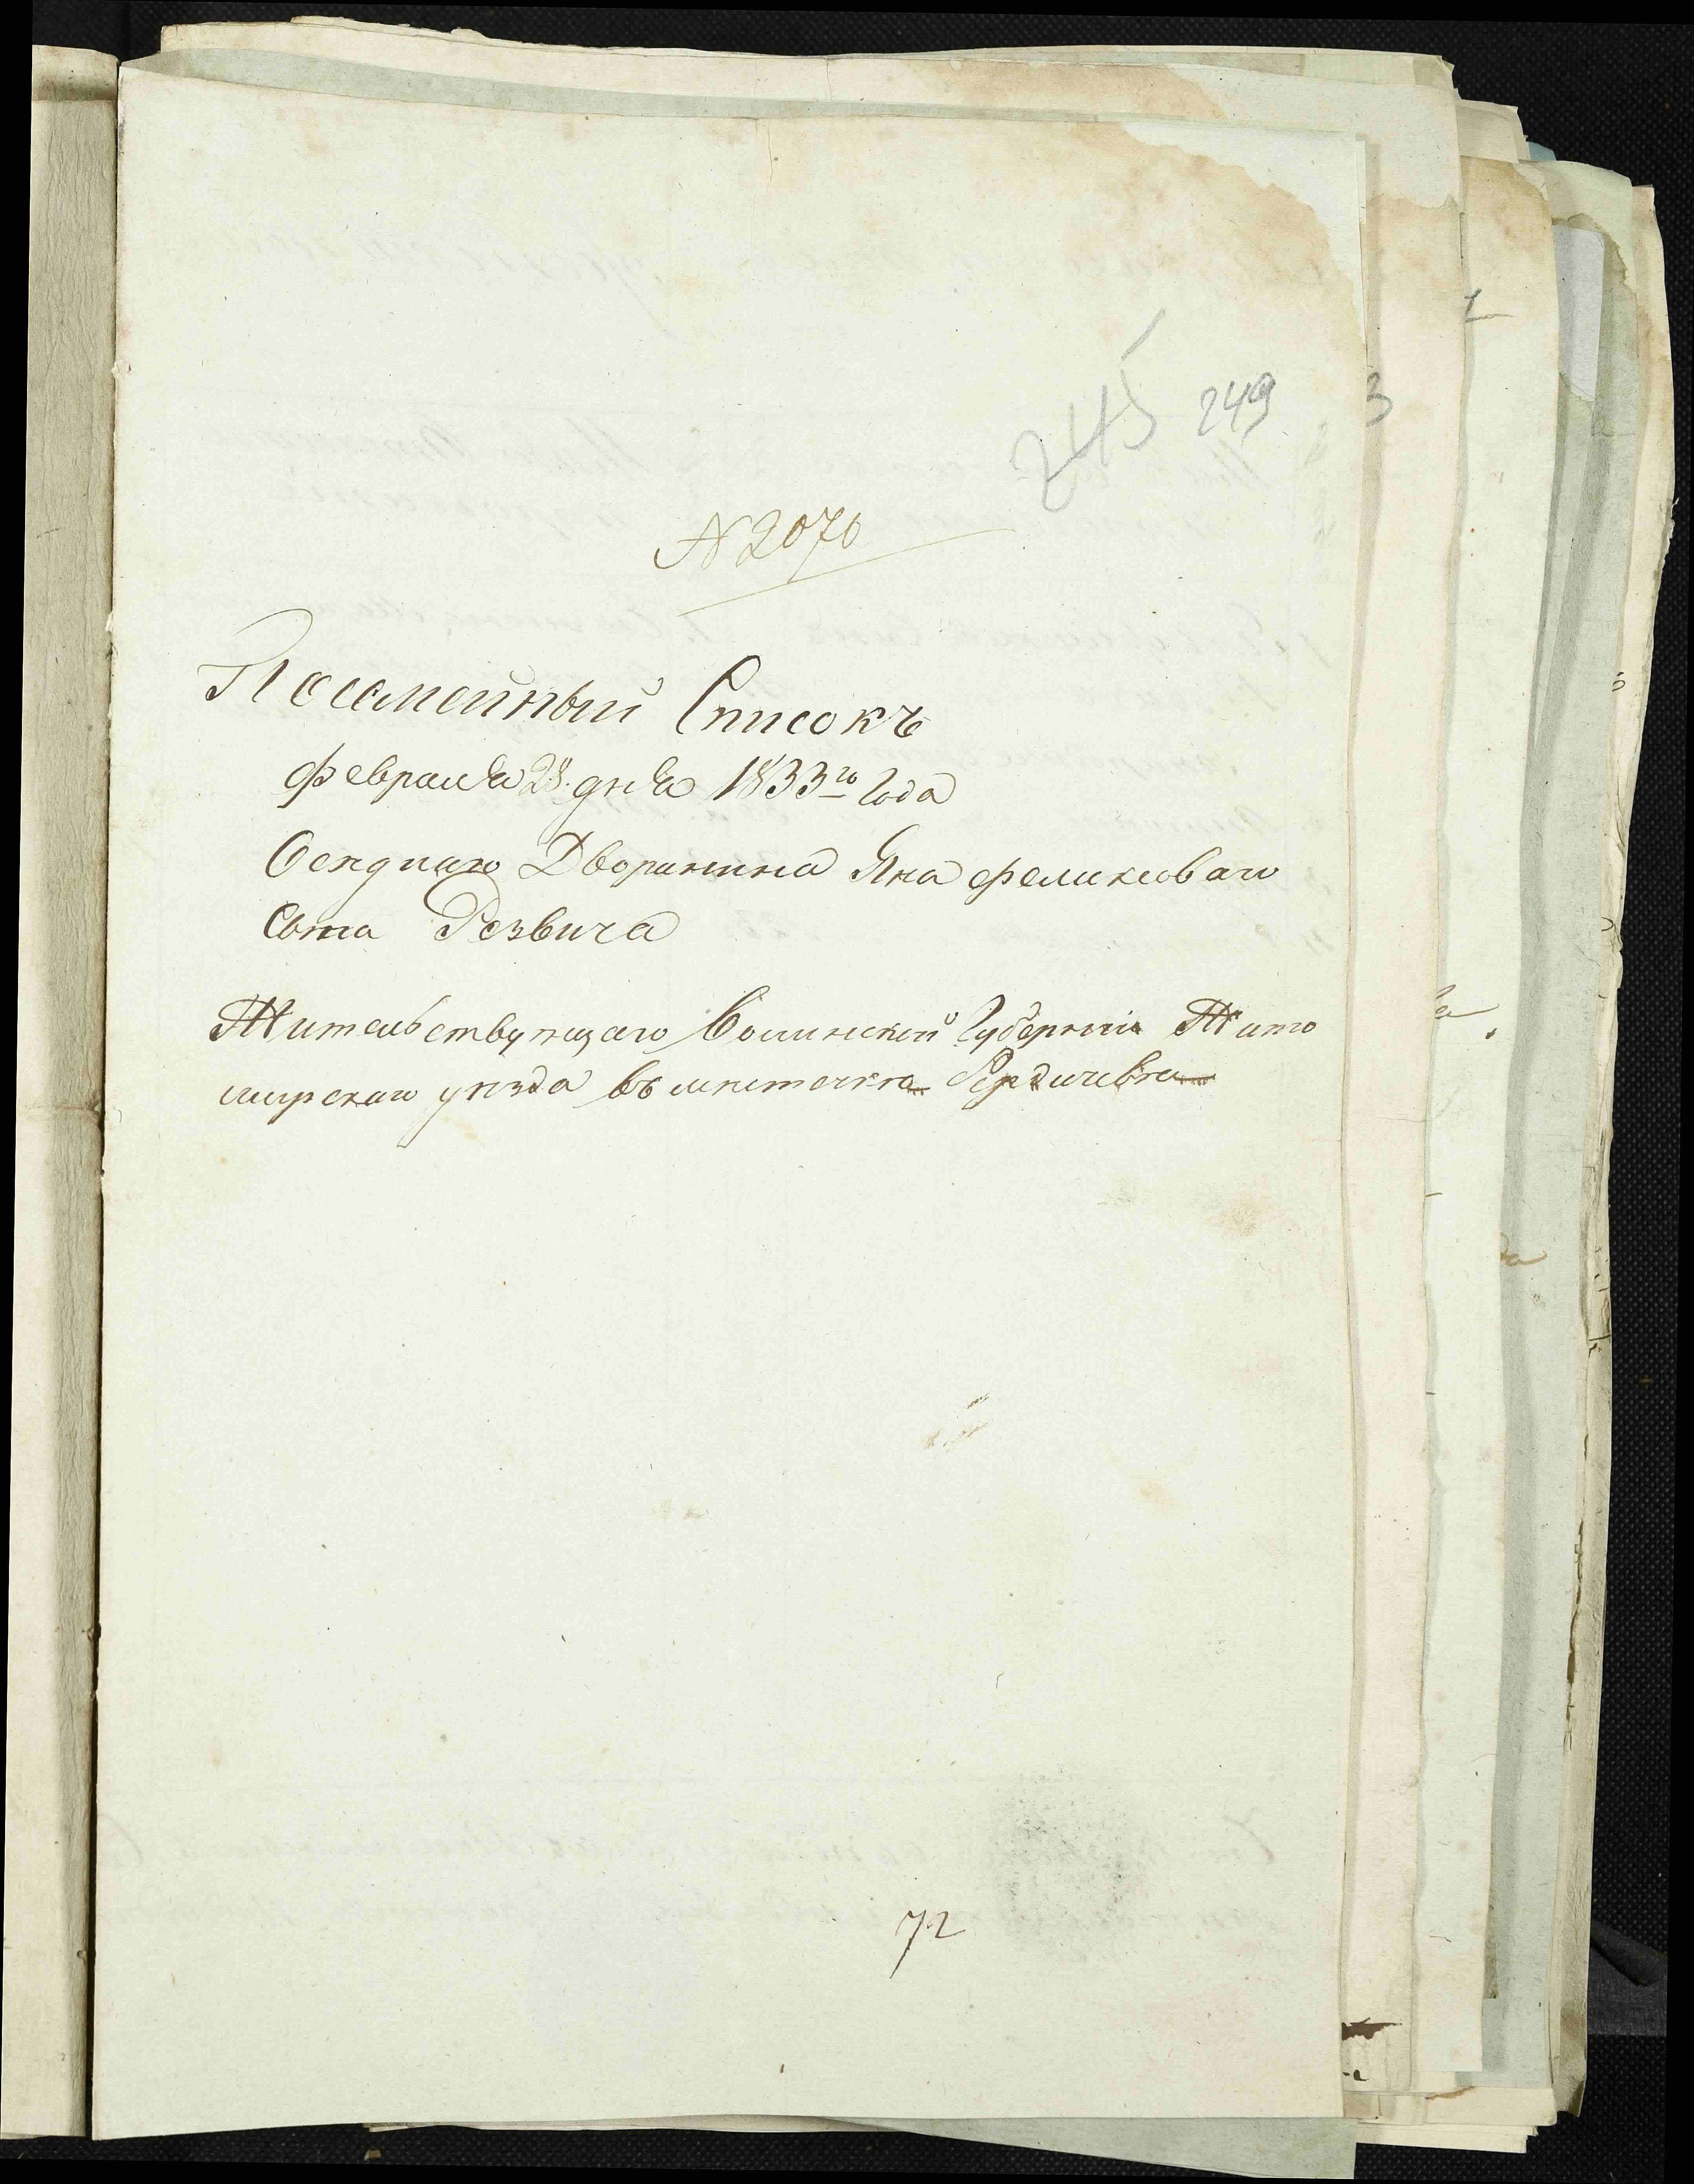 245 249
№ 2070
Посемейный Списокъ
февраля 28 дня 1833го Года
Дворянина Яна Феликсоваго
Сына Резвича
Жительствующаго Волинской Губерніи Жито
мирскаго уѣзда въ местечкѣ Бердичевѣ
72